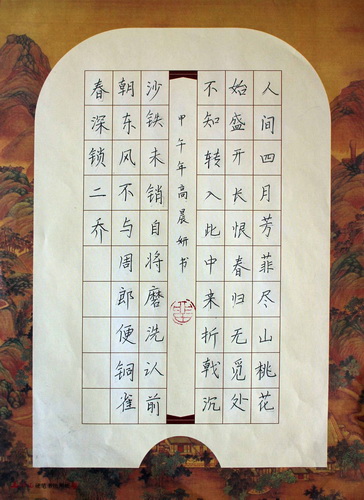 人间四月芳菲尽山桃花
始盛开长恨春归无觅处
不知转入此中来折戟沉
甲午年高晨妍书
沙铁未销自将磨洗认前
朝东风不与周郎便铜雀
春深锁二乔